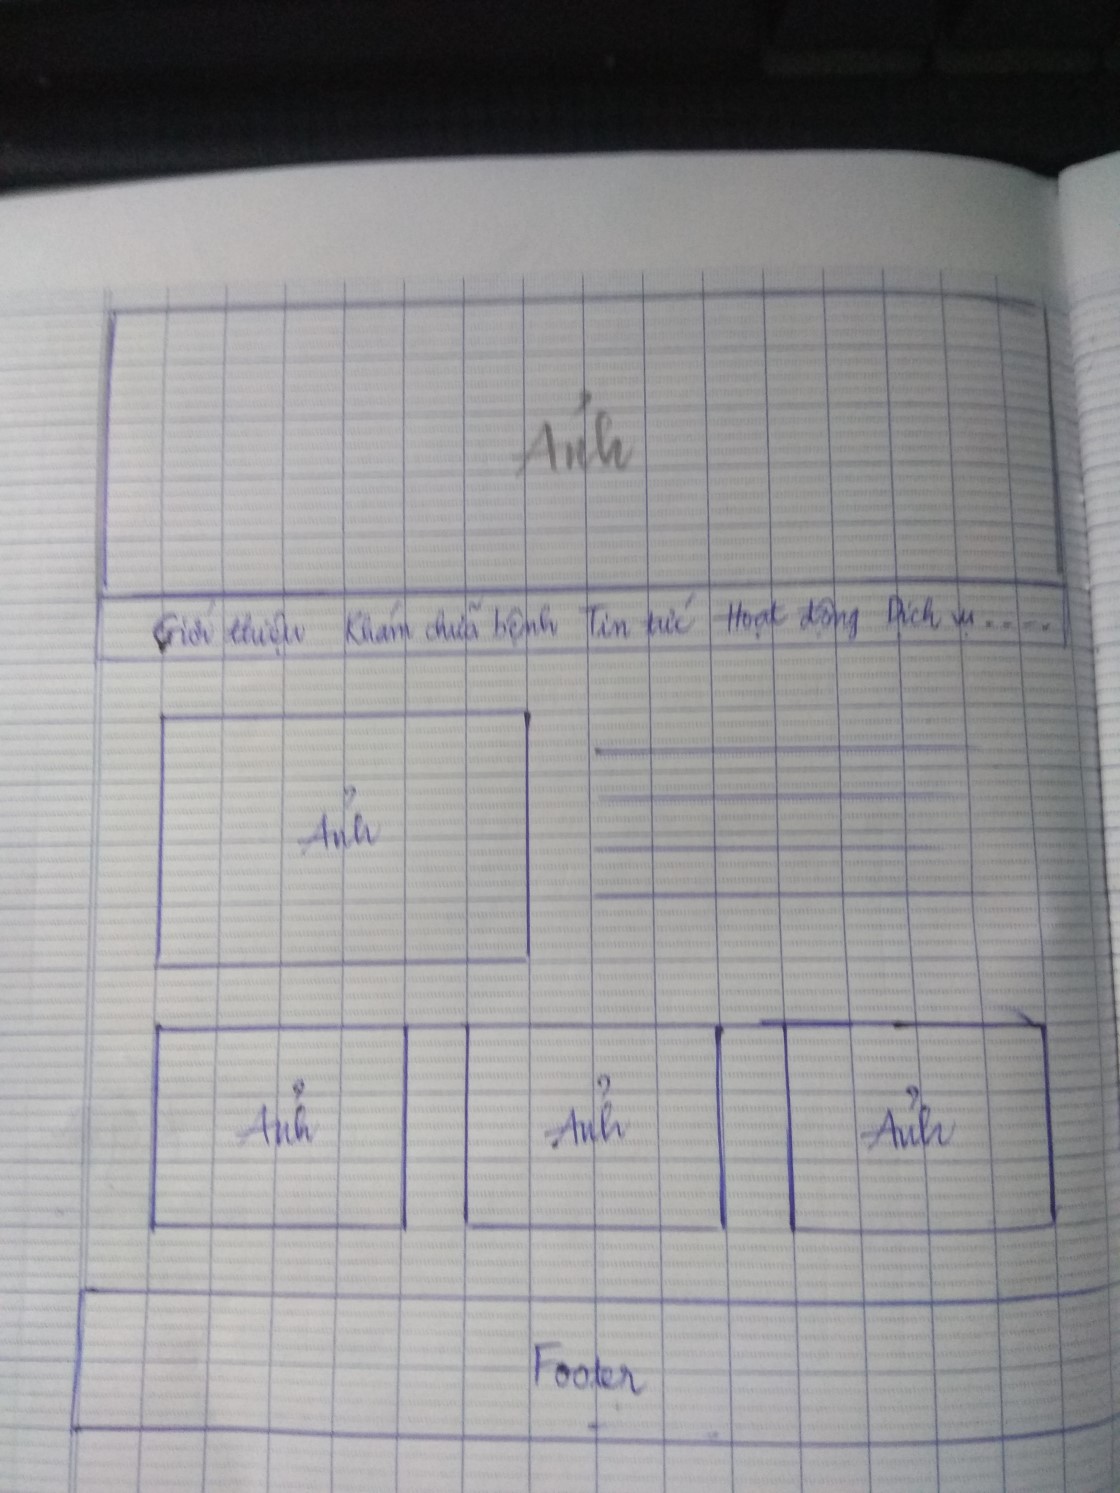 Ảnh
Giới thiệu Khám chữa bệnh Tin tức Hoạt động Dịch vụ.....
Ảnh
Ảnh Ảnh Ảnh
Footer